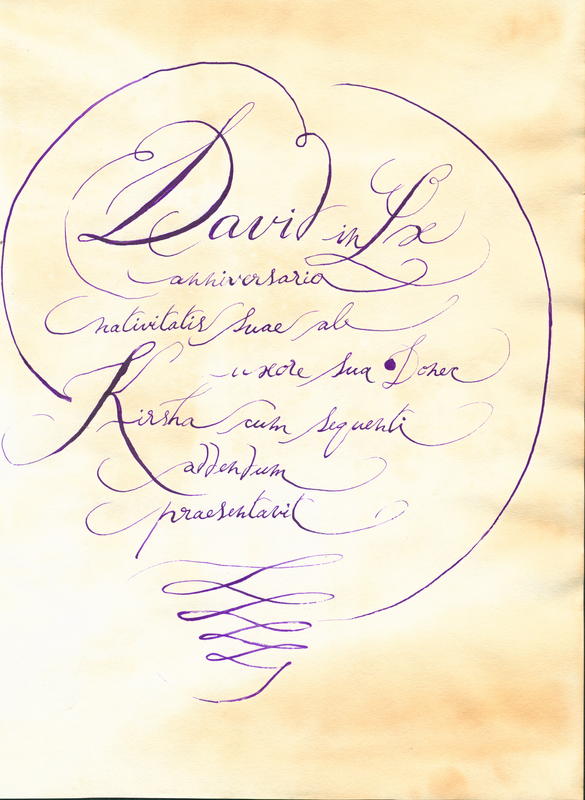 David in Lx
anniversario
nativitatis suae ab
uxore sua Doner
Kirsha cum sequenti
addendum
praesentavit